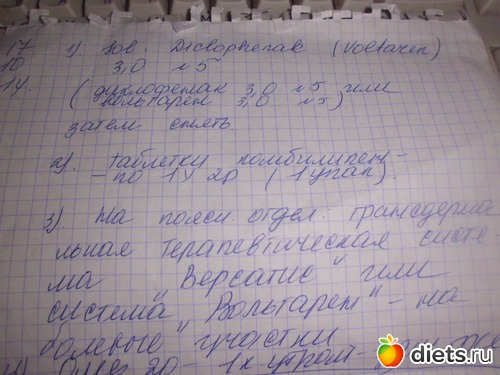 17 1) Юв. Diclophenak (Voltaren)
10 3,0 №5
14. (диклофенак 3,0 №5 или
вольтарен 3,0 №5)
затем снять
2). таблетки комбилипен –
– по 1 х 2р (1 упак).
3). На пояс. отдел. трансдерма
льная терапевтическая систе
ма "Версатис" или
система "Вольтарен" – на
болевые участки
20 – 1 х утром –
diets.ru